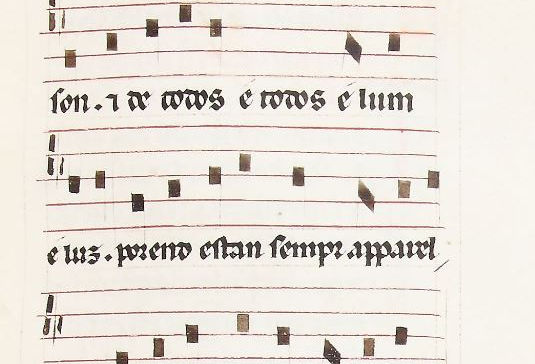 son . ⁊ de todos é todos é lum
é luz . porend estan sempr apparel